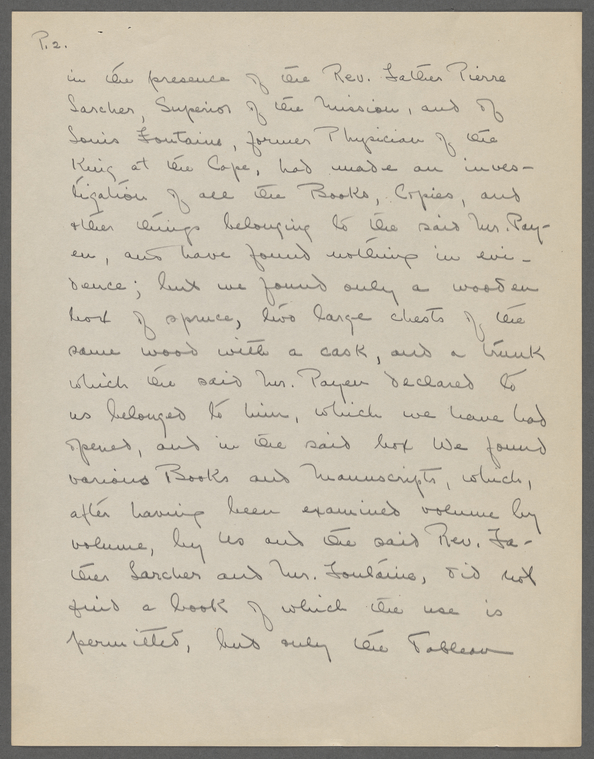 P. 2.
in the presence of the Rev. Father Pierre
Larcher, Superior of the Mission, and of
Louis Fontaine, former Physician of the
King at the Cape, had made an inves-
tigation of all the Books, Copies, and
other things belonging to the said Mr. Pay-
en, and have found nothing in evi-
dence; but we found only a wooden
box of spruce, two large chests of the
same wood with a cask, and a trunk
which the said Mr. Payen declared to
us belonged to him, which we have had
opened, and in the said box We found
various Books and Manuscripts, which,
after having been examined volume by
volume, by Us and the said Rev. Fa-
ther Larcher and Mr. Fontaine, did not
find a book of which the use is
permitted, but only the Tableau